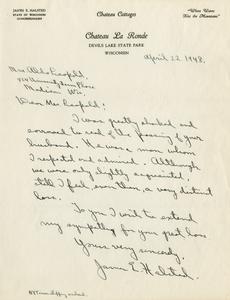 JAMES E. HALSTED
STATE OF WISCONSIN
CONSERVATIONIST
Chateau Cottages
"Where Waves
Kiss the Mountains"
Chateau La Ronde
DEVILS LAKE STATE PARK
WISCONSIN
April 22 1948.
Mrs Aldo Leopold,
Madison Wis.
Dear Mrs Leopold:
I was greatly shocked and
sorrowed to read of the passing of your
husband. He was a man whom
I respected and admired. Although
we were only slightly acquainted,
still I feel, even then, a very distinct
loss.
To you I wish to extend
my sympathy for your great loss
Yours very sincerely,
James E. Halsted.